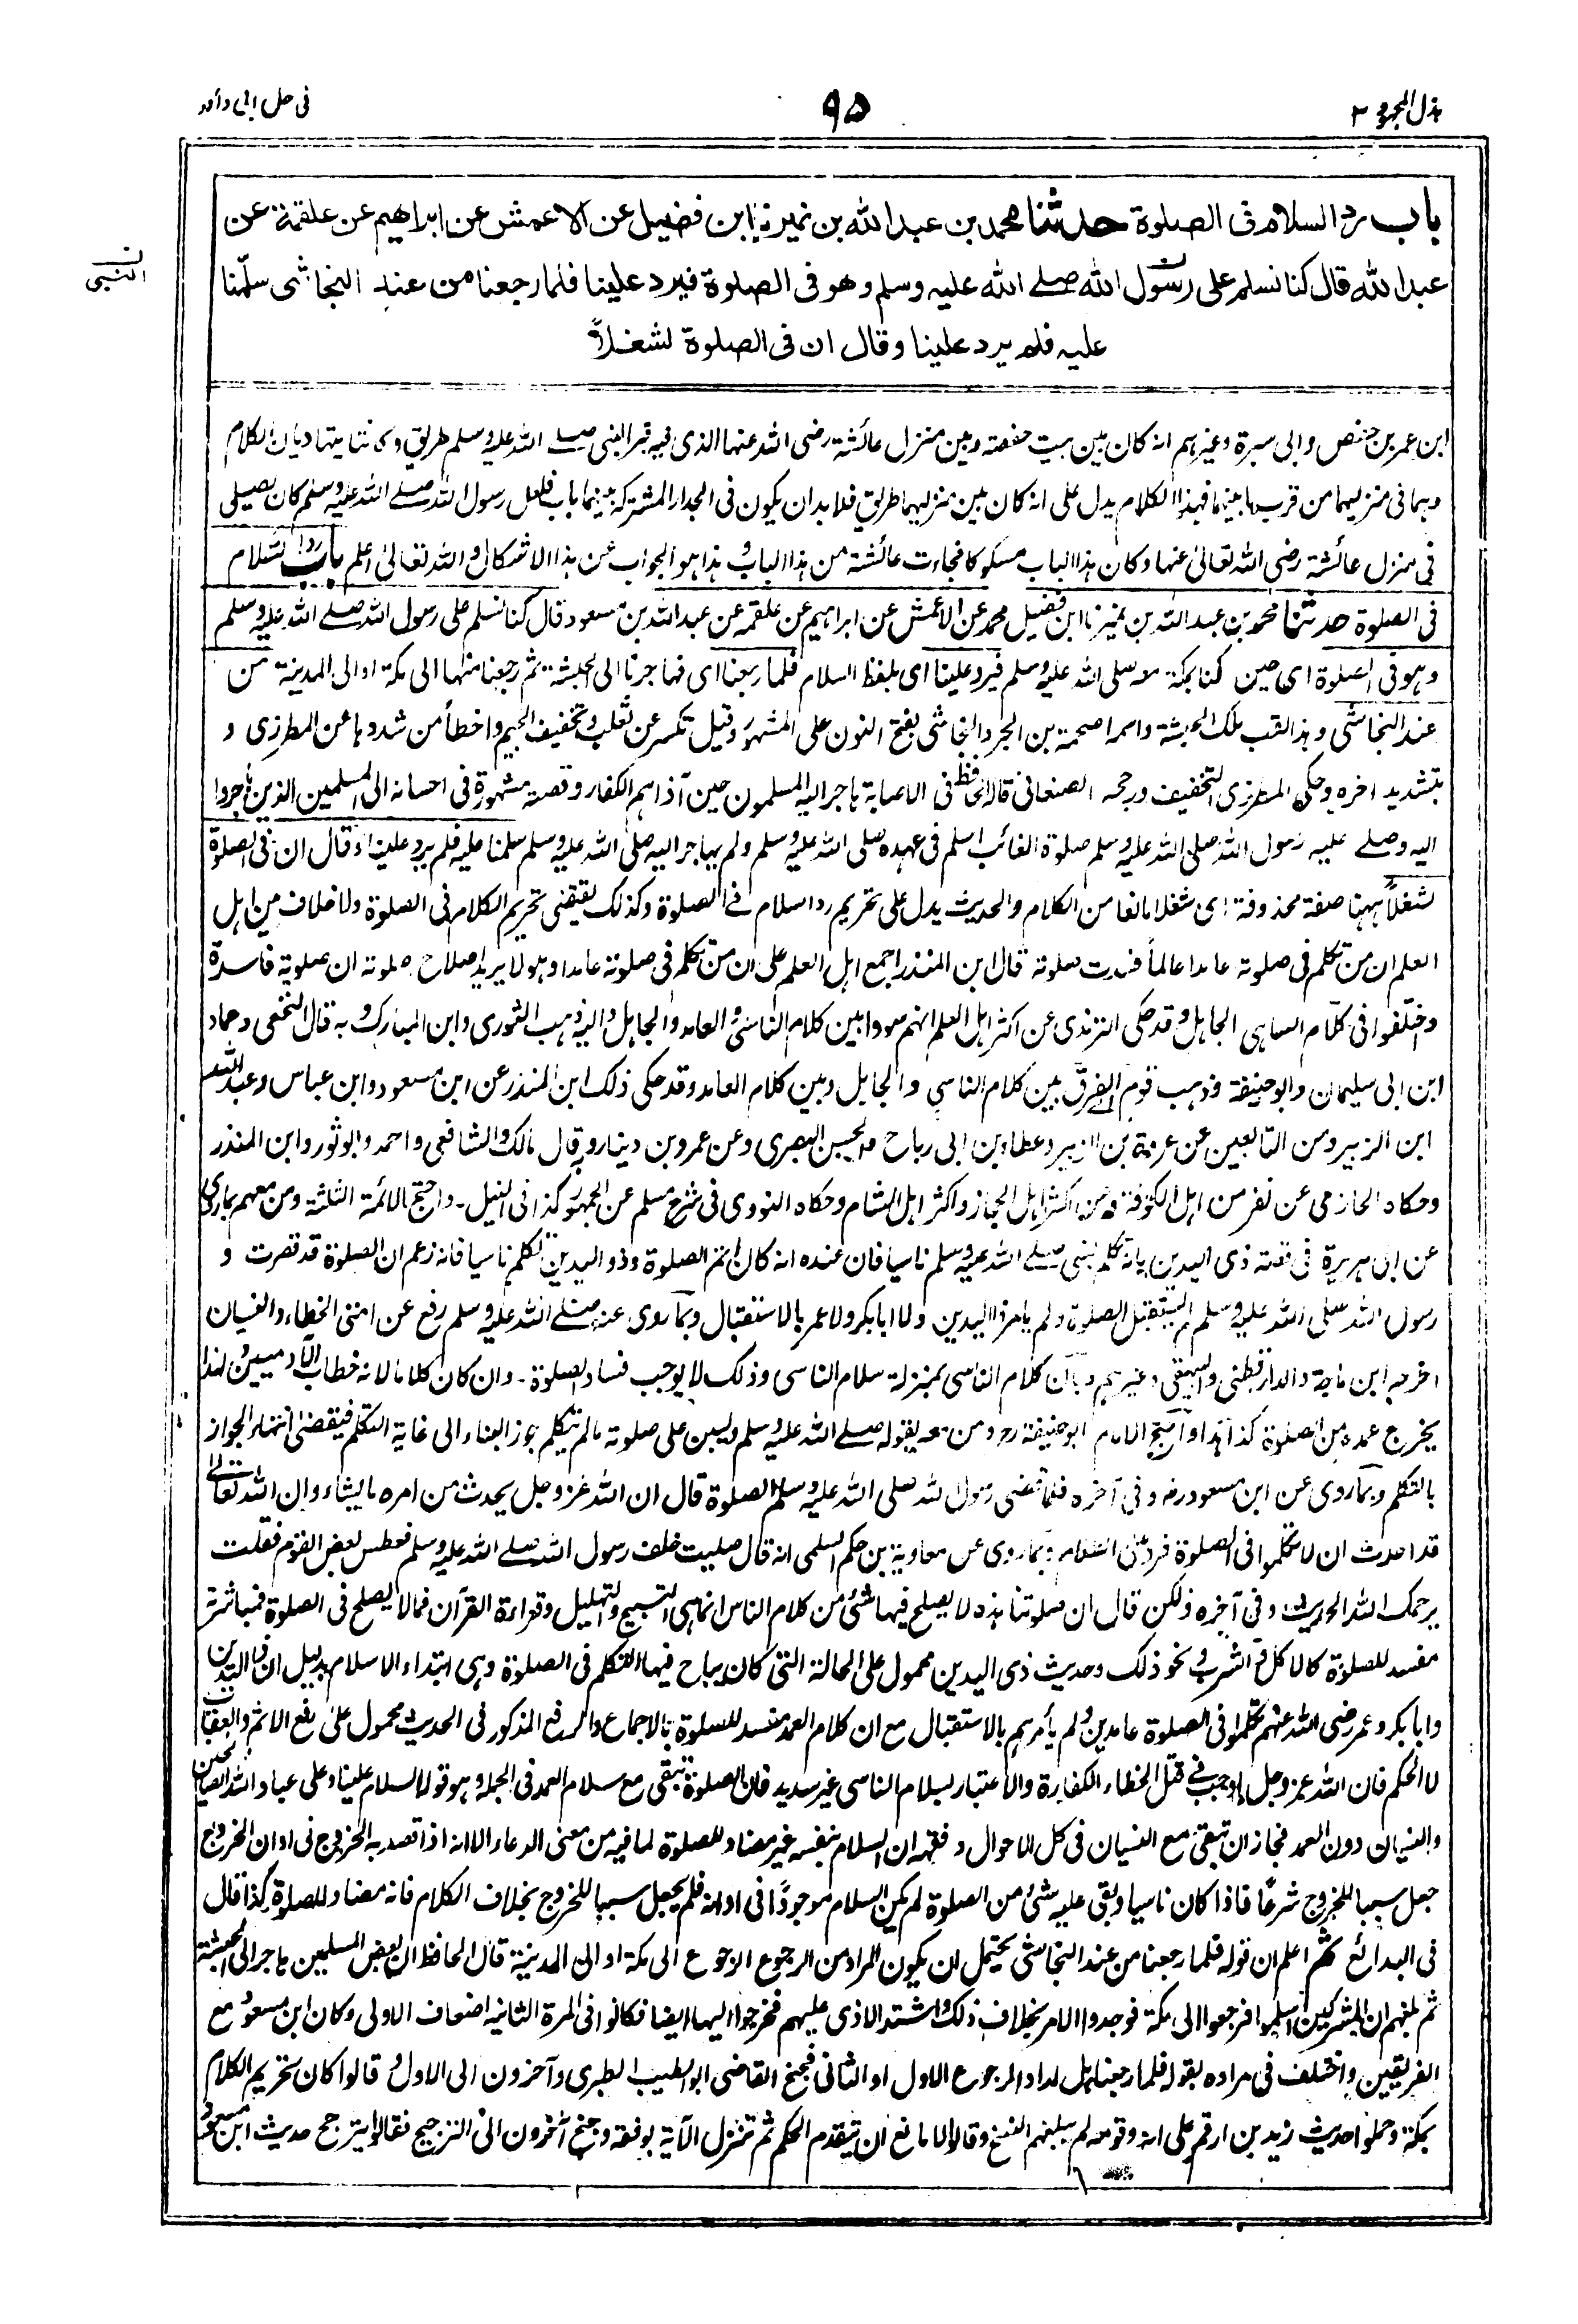 بذل المجهود ٢
٩٥
فى حل ابى داؤد
باب رد السلام فى الصلوة حدثنا محمد بن عبد الله بن نمير نا ابن فضيل عن الاعمش عن ابراهيم عن علقمة عن
عبد الله قال كنا نسلم على رسول الله صلے الله عليه وسلم وهو فى الصلوة فيرد علينا فلما رجعنا من عند النجاشى سلّمنا
النبى
عليه فلم يرد علينا وقال ان فى الصلوة لشغلاً
ابن عمر بن حفص وابى سبرة وغيرہم انہ كان بين بيت حفصة وبين منزل عائشة رضى اللہ عنہا الذى فيہ قبر النبى صلے اللہ عليہ وسلم طريق وكانتا يتہاديان الكلام
وہما فى منزليہما من قرب ما بينہما فہذا الكلام يدل على انہ كان بين منزليہما طريق فلا بد ان يكون فى الجدار المشتركہ بينہما باب فلعل رسول اللہ صلے اللہ عليہ وسلم كان يصلى
فى منزل عائشة رضى اللہ تعالىٰ عنہا وكان ہذا الباب مسكوكا فجاءت عائشة من ہذا الباب وہذا ہو الجواب عن ہذا الاشكال واللہ تعالىٰ اعلم باب رد السلام
فى الصلوة حدثنا محمد بن عبد اللہ بن نمير نا ابن فضيل محمد عن الاعمش عن ابراہيم عن علقمہ عن عبد اللہ بن مسعود قال كنا نسلم على رسول اللہ صلے اللہ عليہ وسلم
وہو فى الصلوة اى حين كنا بمكة معہ صلى اللہ عليہ وسلم فيرد علينا اى بلفظ السلام فلما رجعنا اى فہاجرنا الى الحبشة ثم رجعنا منہا الى مكة او الى المدينة من
عند النجاشى وہذا لقب ملك الحبشة واسمہ اصحمة بن ابجر والنجاشى بفتح النون على المشہور وقيل تكسر عن ثعلب وتخفيف الجيم واخطأ من شددہا عن المطرزى و
بتشديد اخرہ وحكى المطرزى التخفيف ورجحہ الصنعانى قالہ الحافظ فى الاصابة ہاجر اليہ المسلمون حين آذاہم الكفار وقصتہ مشہورة فى احسانہ الى المسلمين الذين ہاجروا
اليہ وصلے عليہ رسول اللہ صلى اللہ عليہ وسلم صلوة الغائب اسلم فى عہدہ صلى اللہ عليہ وسلم ولم يہاجر اليہ صلى اللہ عليہ وسلم سلمنا عليہ فلم يرد علينا وقال ان فى الصلوة
لشغلاً ہہنا صفة محذوفة اى شغلا مانعا من الكلام والحديث يدل على تحريم رد السلام فے الصلوة وكذلك يقتضى تحريم الكلام فى الصلوة ولا خلاف من اہل
العلم ان من تكلم فى صلوتہ عامدا عالماً فسدت صلوتہ قال ابن المنذر اجمع اہل العلم على ان من تكلم فى صلوتہ عامدا وہو لا يريد اصلاح صلوتہ ان صلوتہ فاسدة
واختلفوا فى كلام الساہى الجاہل وقد حكى الترمذى عن اكثر اہل العلم انہم سووا بين كلام الناسى والعامد والجاہل واليہ ذہب الثورى وابن المبارك وبہ قال النخعى وحماد
ابن ابى سليمان وابو حنيفة وذہب قوم الى الفرق بين كلام الناسى والجاہل وبين كلام العامد وقد حكى ذلك ابن المنذر عن ابن مسعود وابن عباس وعبد اللہ
ابن الزبير ومن التابعين عن عروة بن الزبير وعطاء بن ابى رباح والحسن البصرى وعن عمرو بن دينار وبہ قال مالك والشافعى واحمد وابو ثور وابن المنذر
وحكاہ الحازمى عن نفر من اہل الكوفة وعن اكثر اہل الحجاز واكثر اہل الشام وحكاہ النووى فى شرح مسلم عن الجمہور كذا فى النيل ۔ واحتج الائمة الثلثة ومن معہم بما روى
عن ابى ہريرة فى قصة ذى اليدين بانہ تكلم النبى صلے اللہ عليہ وسلم ناسيا فان عندہ انہ كان اتم الصلوة وذو اليدين تكلم ناسيا فانہ زعم ان الصلوة قد قصرت و
رسول اللہ صلى اللہ عليہ وسلم لم يستقبل الصلوة ولم يامر ذا اليدين ولا ابابكر ولا عمر بالاستقبال وبما روى عنہ صلے اللہ عليہ وسلم رفع عن امتى الخطاء والنسيان
اخرجہ ابن ماجة والدارقطنى والبيہقى وغيرہم وبان كلام الناسى بمنزلة سلام الناسى وذلك لا يوجب فساد الصلوة ۔ وان كان كلاما لانہ خطاب الآدميين ولہذا
يخرج عمدہ من الصلوة كذا ہذا واحتج الامام ابو حنيفة رح ومن معہ بقولہ صلے اللہ عليہ وسلم وليبن على صلوتہ مالم يتكلم جوز البناء الى غاية التكلم فيقتضى انتہاء الجواز
بالتكلم وبما روى عن ابن مسعود رضہ وفى آخرہ فلما قضى رسول اللہ صلى اللہ عليہ وسلم الصلوة قال ان اللہ عز وجل يحدث من امرہ ما يشاء وان اللہ تعالىٰ
قد احدث ان لا تكلموا فى الصلوة فرد على السلام وبما روى عن معاوية بن حكم السلمى انہ قال صليت خلف رسول اللہ صلے اللہ عليہ وسلم فعطس بعض القوم فقلت
يرحمك اللہ الحديث وفى آخرہ ولكن قال ان صلوتنا ہذہ لا يصلح فيہا شئ من كلام الناس انما ہى التسبيح والتہليل وقراءة القرآن فمالا يصلح فى الصلوة فمباشرتہ
مفسد للصلوة كالاكل والشرب ونحو ذلك وحديث ذى اليدين محمول على الحالة التى كان يباح فيہا التكلم فى الصلوة وہى ابتداء الاسلام بدليل ان ذا اليدين
وابابكر وعمر رضى اللہ عنہم تكلموا فى الصلوة عامدين ولم يأمرہم بالاستقبال مع ان كلام العمد مفسد للصلوة بالاجماع والرفع المذكور فى الحديث محمول على رفع الاثم والعقاب
لا الحكم فان اللہ عز وجل اوجب فے قتل الخطاء الكفارة والاعتبار بسلام الناسى غير سديد فان الصلوة تبقى مع سلام العمد فى الجملة وہو قولہ السلام علينا وعلى عباد اللہ الصالحين
والنسيان دون العمد فجاز ان تبقى مع النسيان فى كل الاحوال وفقہہ ان السلام بنفسہ غير مضاد للصلوة لما فيہ من معنى الدعاء الا انہ اذا قصد بہ الخروج فى اوان الخروج
جعل سببا للخروج شرعًا فاذا كان ناسيا وبقى عليہ شئ من الصلوة لم يكن السلام موجودًا فى اوانہ فلم يجعل سببا للخروج بخلاف الكلام فانہ مضاد للصلوة كذا قال
فى البدائع ثم اعلم ان قولہ فلما رجعنا من عند النجاشى يحتمل ان يكون المراد من الرجوع الرجوع الى مكة او الى المدينة قال الحافظ ان بعض المسلمين ہاجر الى الحبشة
ثم بلغہم ان المشركين اسلموا فرجعوا الى مكة فوجدوا الامر بخلاف ذلك واشتد الاذى عليہم فخرجوا اليہا ايضا فكانوا فى المرة الثانيہ اضعاف الاولى وكان ابن مسعود مع
الفريقين واختلف فى مرادہ بقولہ فلما رجعنا ہل اراد الرجوع الاول او الثانى فجنح القاضى ابو الطيب الطبرى وآخرون الى الاول وقالوا كان تحريم الكلام
بمكة وحملوا حديث زيد بن ارقم على انہ وقومہ لم يبلغہم النسخ وقالوا لا مانع ان يتقدم الحكم ثم تنزل الآية بوفقہ وجنح آخرون الى الترجيح فقالوا يترجح حديث ابن مسعود